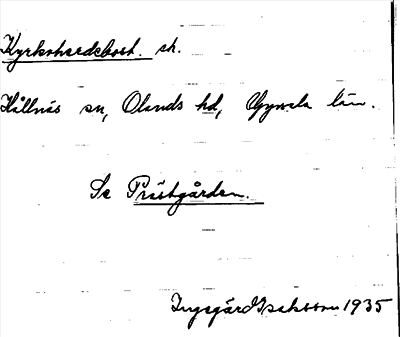 Kyrkoherdebost. sk.
Hållnäs sn, Olands hd, Uppsala län.
Se Prästgården.
Ingegärd Isaksson 1935